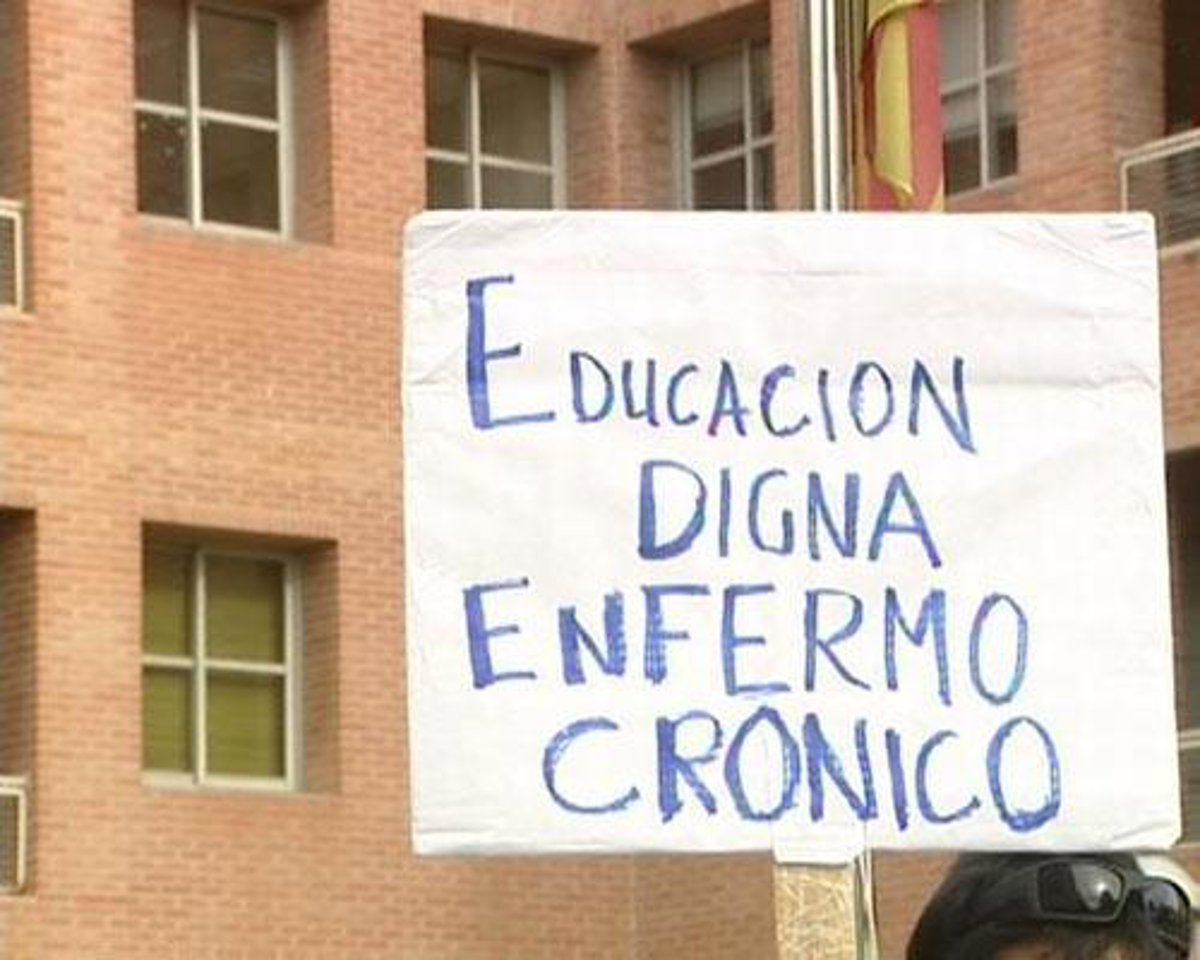 EDUCACION
DIGNA
ENFERMO
CRONICO